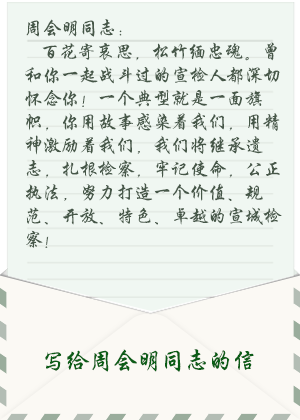 周会明同志：
百花寄哀思，松竹缅忠魂。曾
和你一起战斗过的宣检人都深切
怀念你！一个典型就是一面旗
帜，你用故事感染着我们，用精
神激励着我们，我们将继承遗
志，扎根检察，牢记使命，公正
执法，努力打造一个价值、规
范、开放、特色、卓越的宣城检
察！
写给周会明同志的信